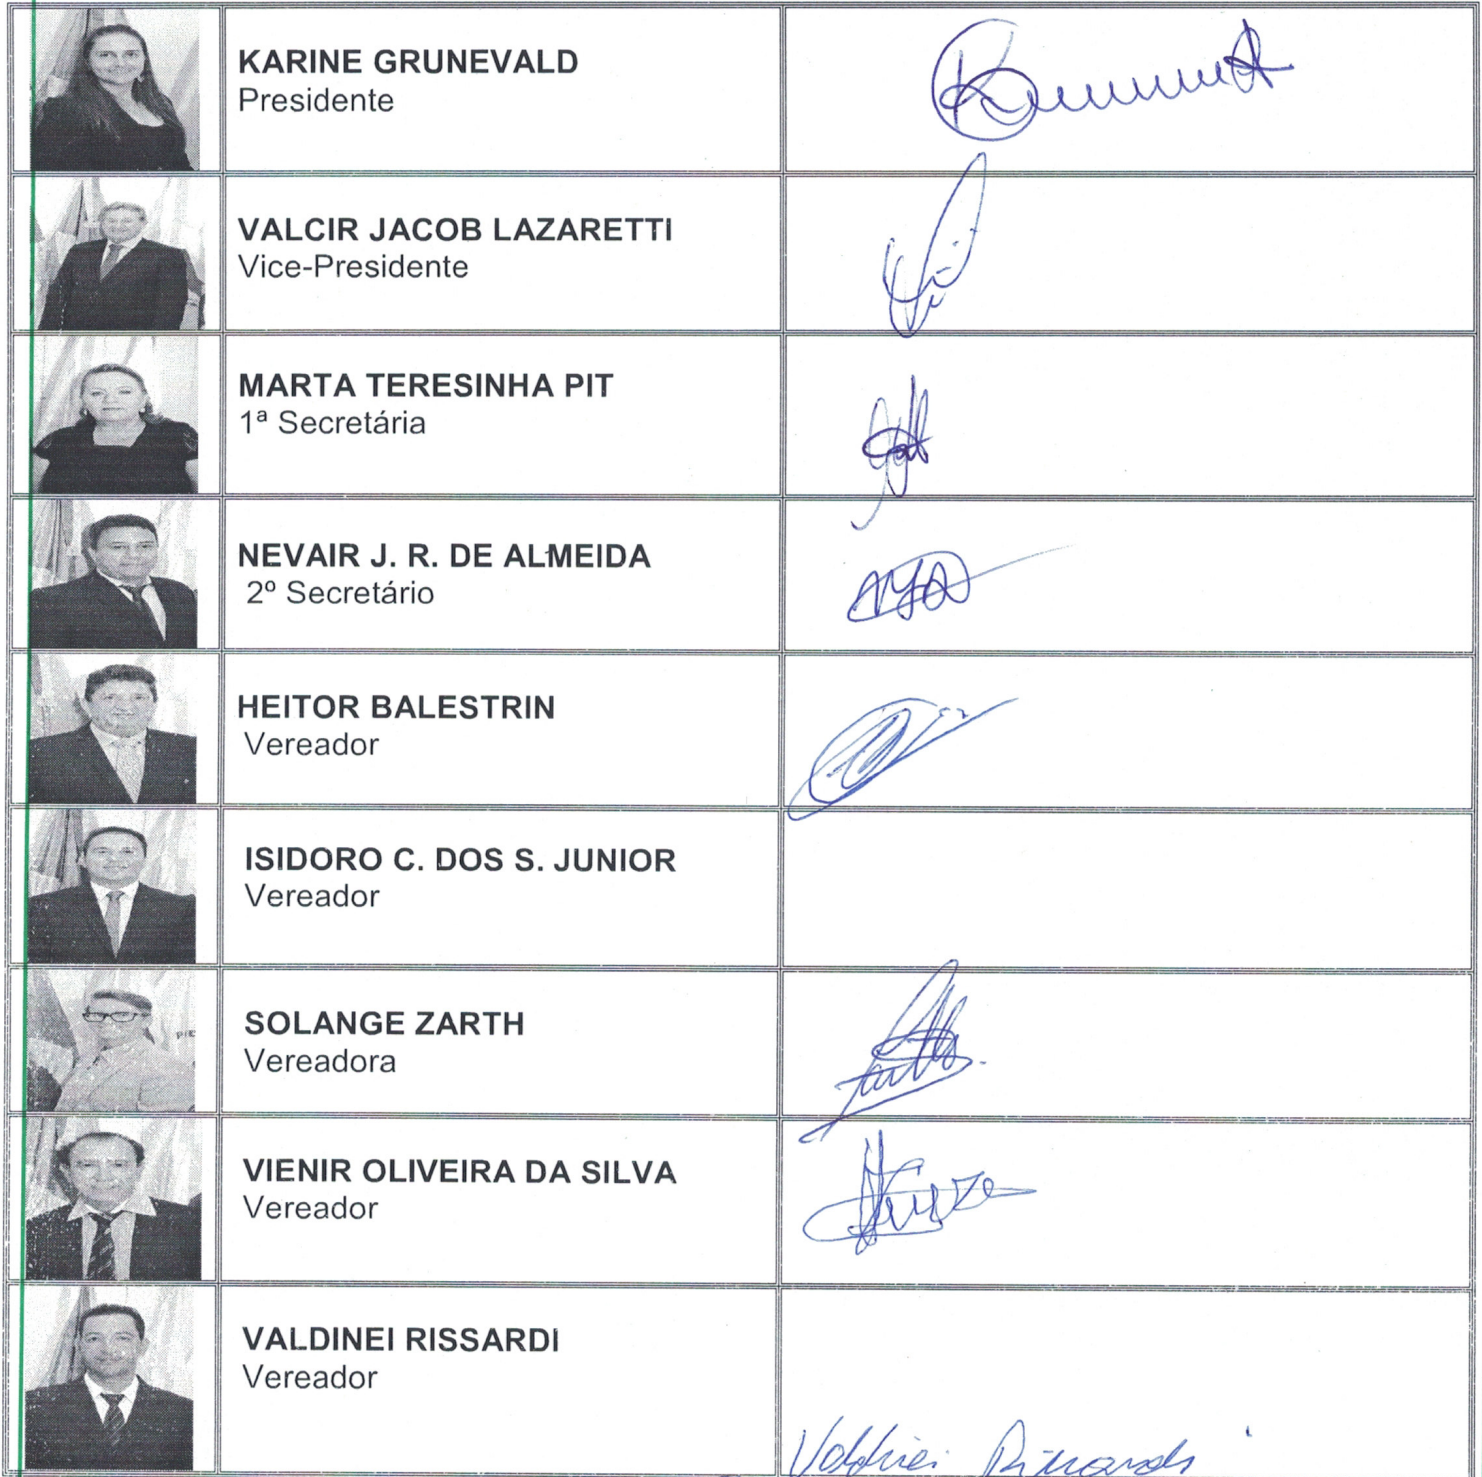 KARINE GRUNEVALD
Presidente
VALCIR JACOB LAZARETTI
Vice-Presidente
MARTA TERESINHA PIT
1ª Secretária
NEVAIR J. R. DE ALMEIDA
2º Secretário
HEITOR BALESTRIN
Vereador
ISIDORO C. DOS S. JUNIOR
Vereador
SOLANGE ZARTH
Vereadora
VIENIR OLIVEIRA DA SILVA
Vereador
VALDINEI RISSARDI
Vereador
Valdinei Rissardi